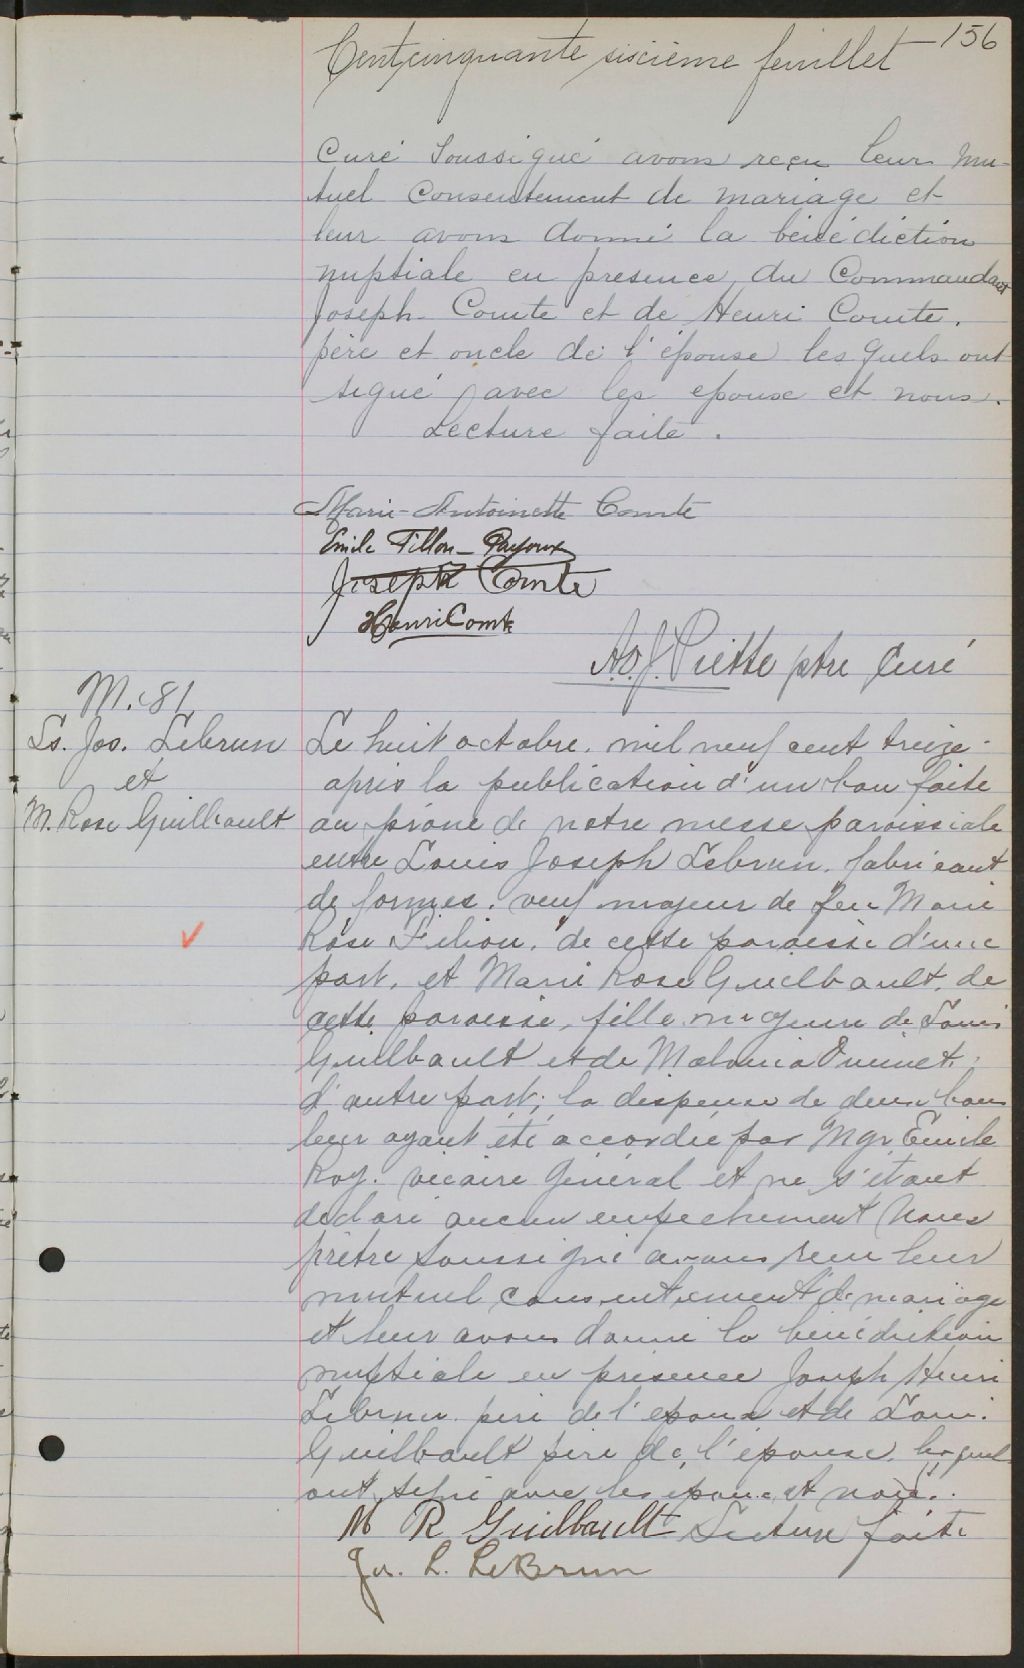 Cent cinquante sixième feuillet 156
Curé Soussigné avons reçu leur mu-
tuel Consentement de mariage et
leur avons donné la bénédiction
nuptiale en presence du Commandant
Joseph Comte et de Henri Comte.
père et oncle de l'épouse les quels ont
signé avec les epoux et nous.
Lecture faite.
Marie-Antoinette Comte
Emile Fillon-
Joseph Comte
Henri Comte
A.O.J. Piette ptre Curé
M. 81
Ls. Jos. Lebrun
et
M. Rose Guilbault
Le huit octobre. mil neuf cent treize.
après la publication d'un ban faite
au prône de notre messe paroissiale
entre Louis Joseph Lebrun. fabricant
de formes. veuf majeur de feu Marie
Rose Filion. de cette paroisse d'une
part, et Marie Rose Guilbault, de
cette paroisse, fille majeure de Louis
Guilbault et de Ouimet,
d'autre part; la dispense de deux bans
leur ayant été accordée par Mgr Emile
Roy. vicaire Général et ne s'étant
déclaré aucun empechement Nous
prêtre Soussigné avons reçu leur
mutuel consentement de mariage
et leur avons donné la bénédiction
nuptiale en présence Joseph Henri
Lebrun père de l'époux et de Louis
Guilbault père de l'épouse. lesquels
ont signé avec les époux et nous.
M R Guilbault Lecture faite
L. LeBrun